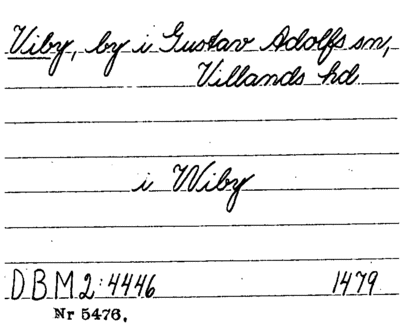 Viby, by i Gustav Adolfs sn,
Villands hd
i Wiby
DBM 2:4446 1479
Nr 5476.